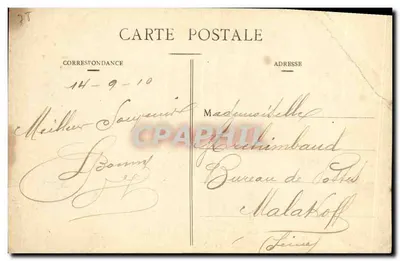 CARTE POSTALE
CORRESPONDANCE
ADRESSE
14-9-10
Meilleur Souvenir
Mademoiselle
Archimbaud
Bureau de Postes
Malakoff
(Seine)
CPAPHIL